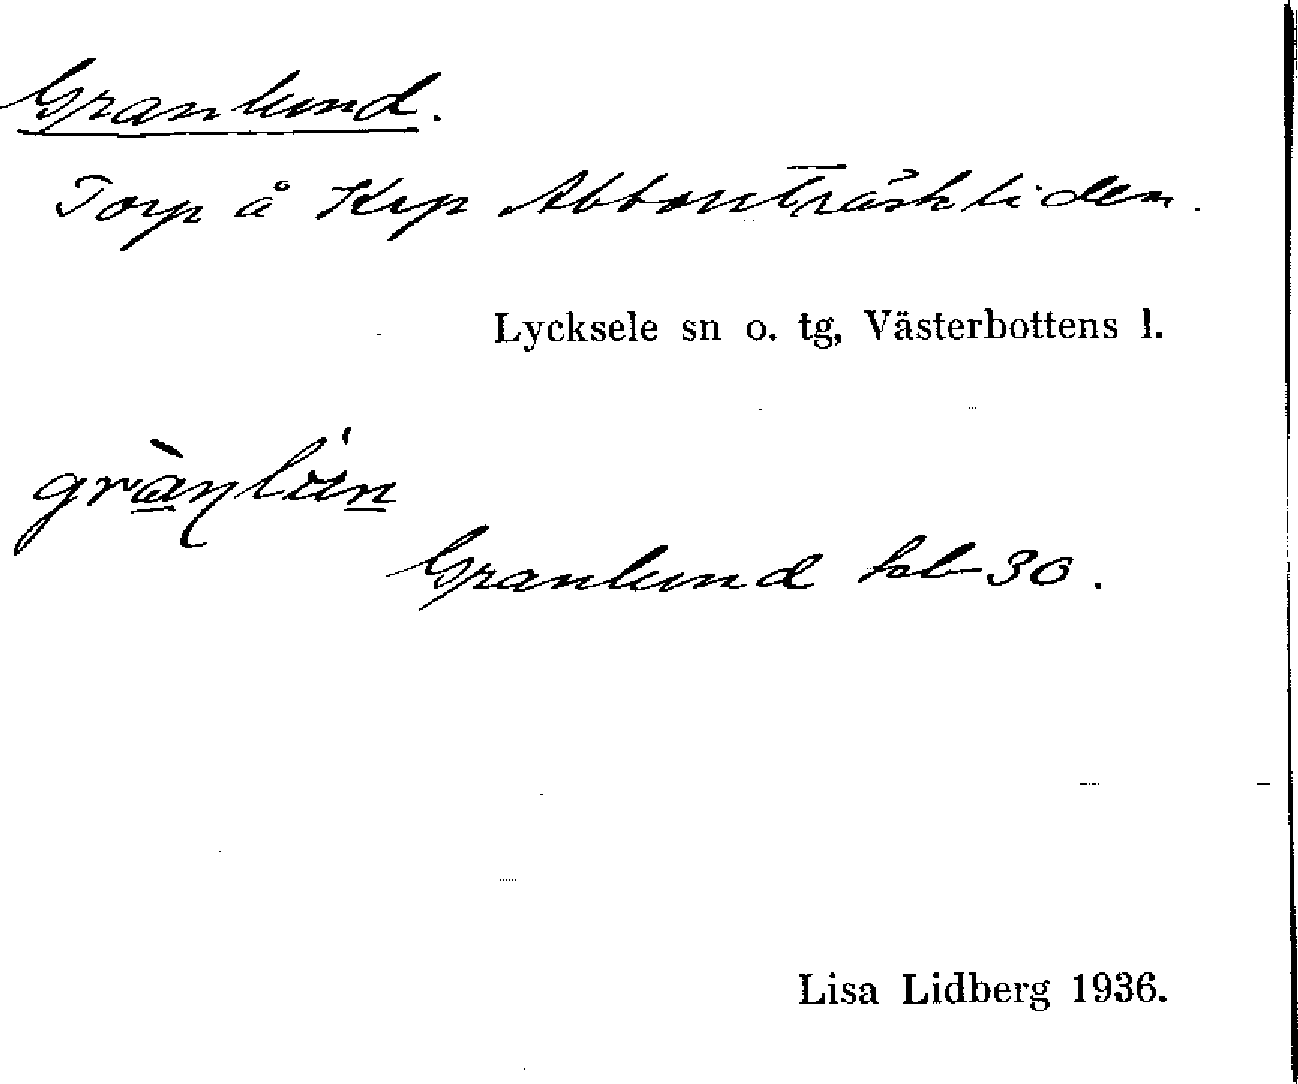 Granlund.
Torp å Krp Abborrträskliden.
Lycksele sn o. tg, Västerbottens l.
Granlund hsb 30.
Lisa Lidberg 1936.